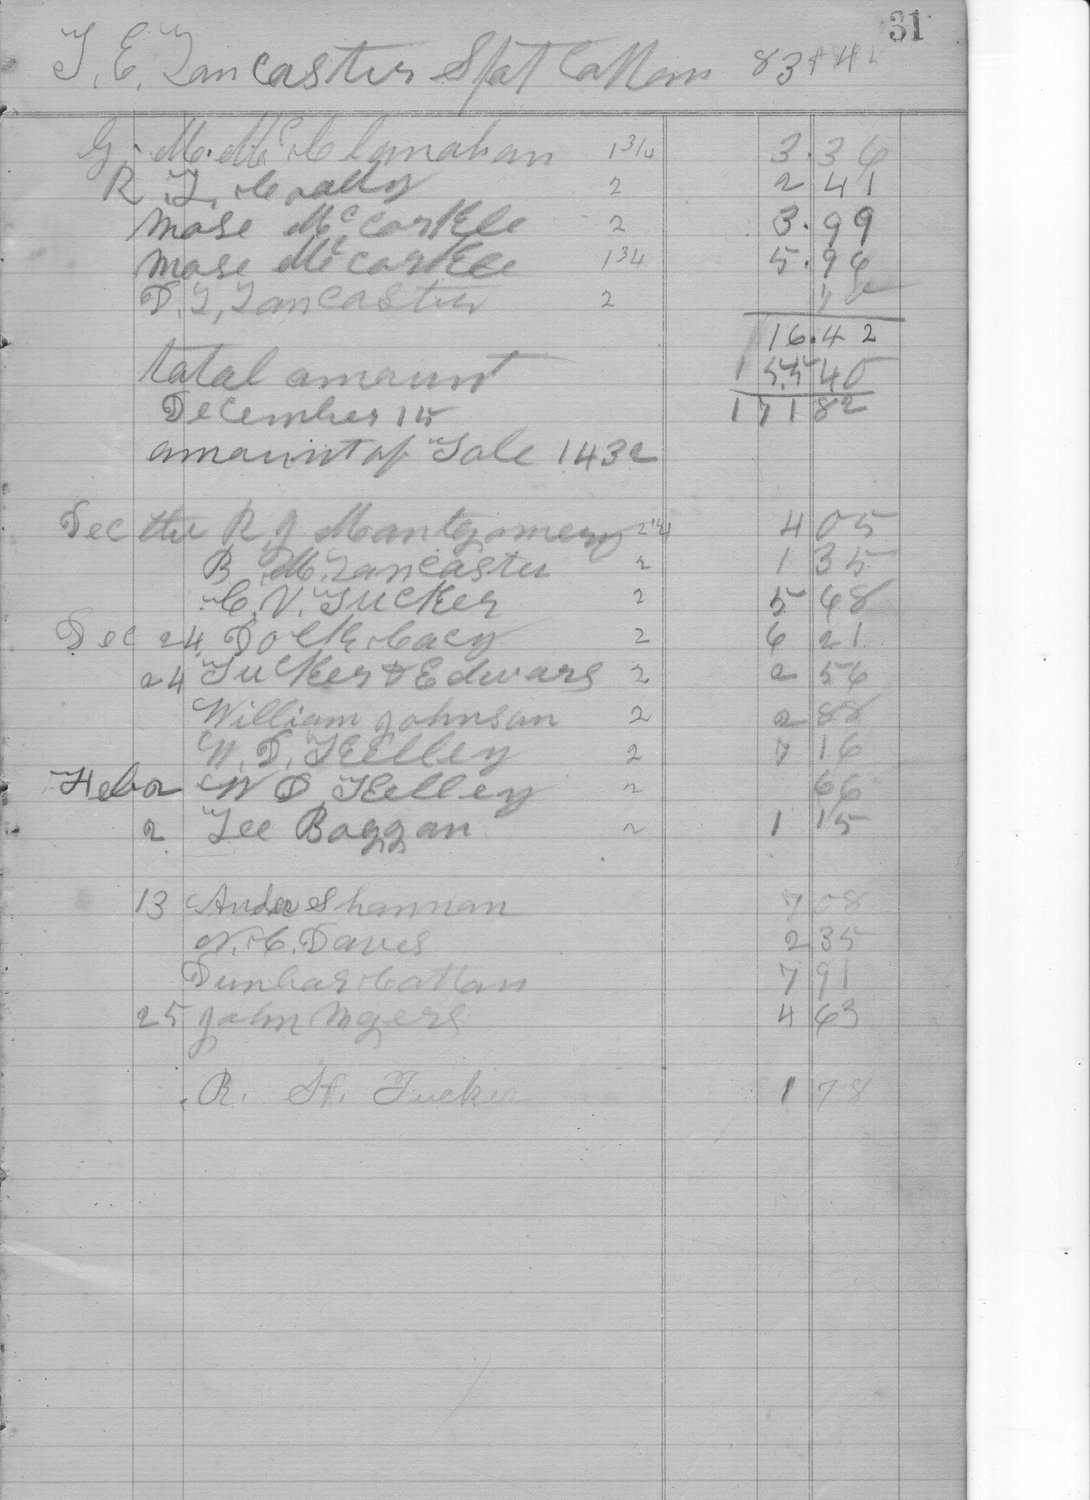 31
T. E. Lancaster Spot Cotton
G. M. McClanahan 1 3/4 3.36
R. L. 2 2 41
Mose McCorkle 2 3.99
Mose McCorkle 1 3/4 5.96
D. L. Lancaster 2
16.42
total amount 155 40
December 15 171 82
amount of Sale 1432
Dec the R J Montgomery 2 1/4 4 05
B. M. Lancaster 2 1 35
C. V. Tucker 2 5 68
Dec 24 2 6 21
24 Tucker & Edwards 2 2 56
William Johnson 2 2 88
W. D. Kelley 2 7 16
Feb 2 W D Kelley 2 66
2 Lee Boggan 2 1 15
13 Shannan 7 08
N. C. Daves 2 35
Dunbar Cotton 7 91
25 John Myers 4 63
R. H. Tucker 1 78